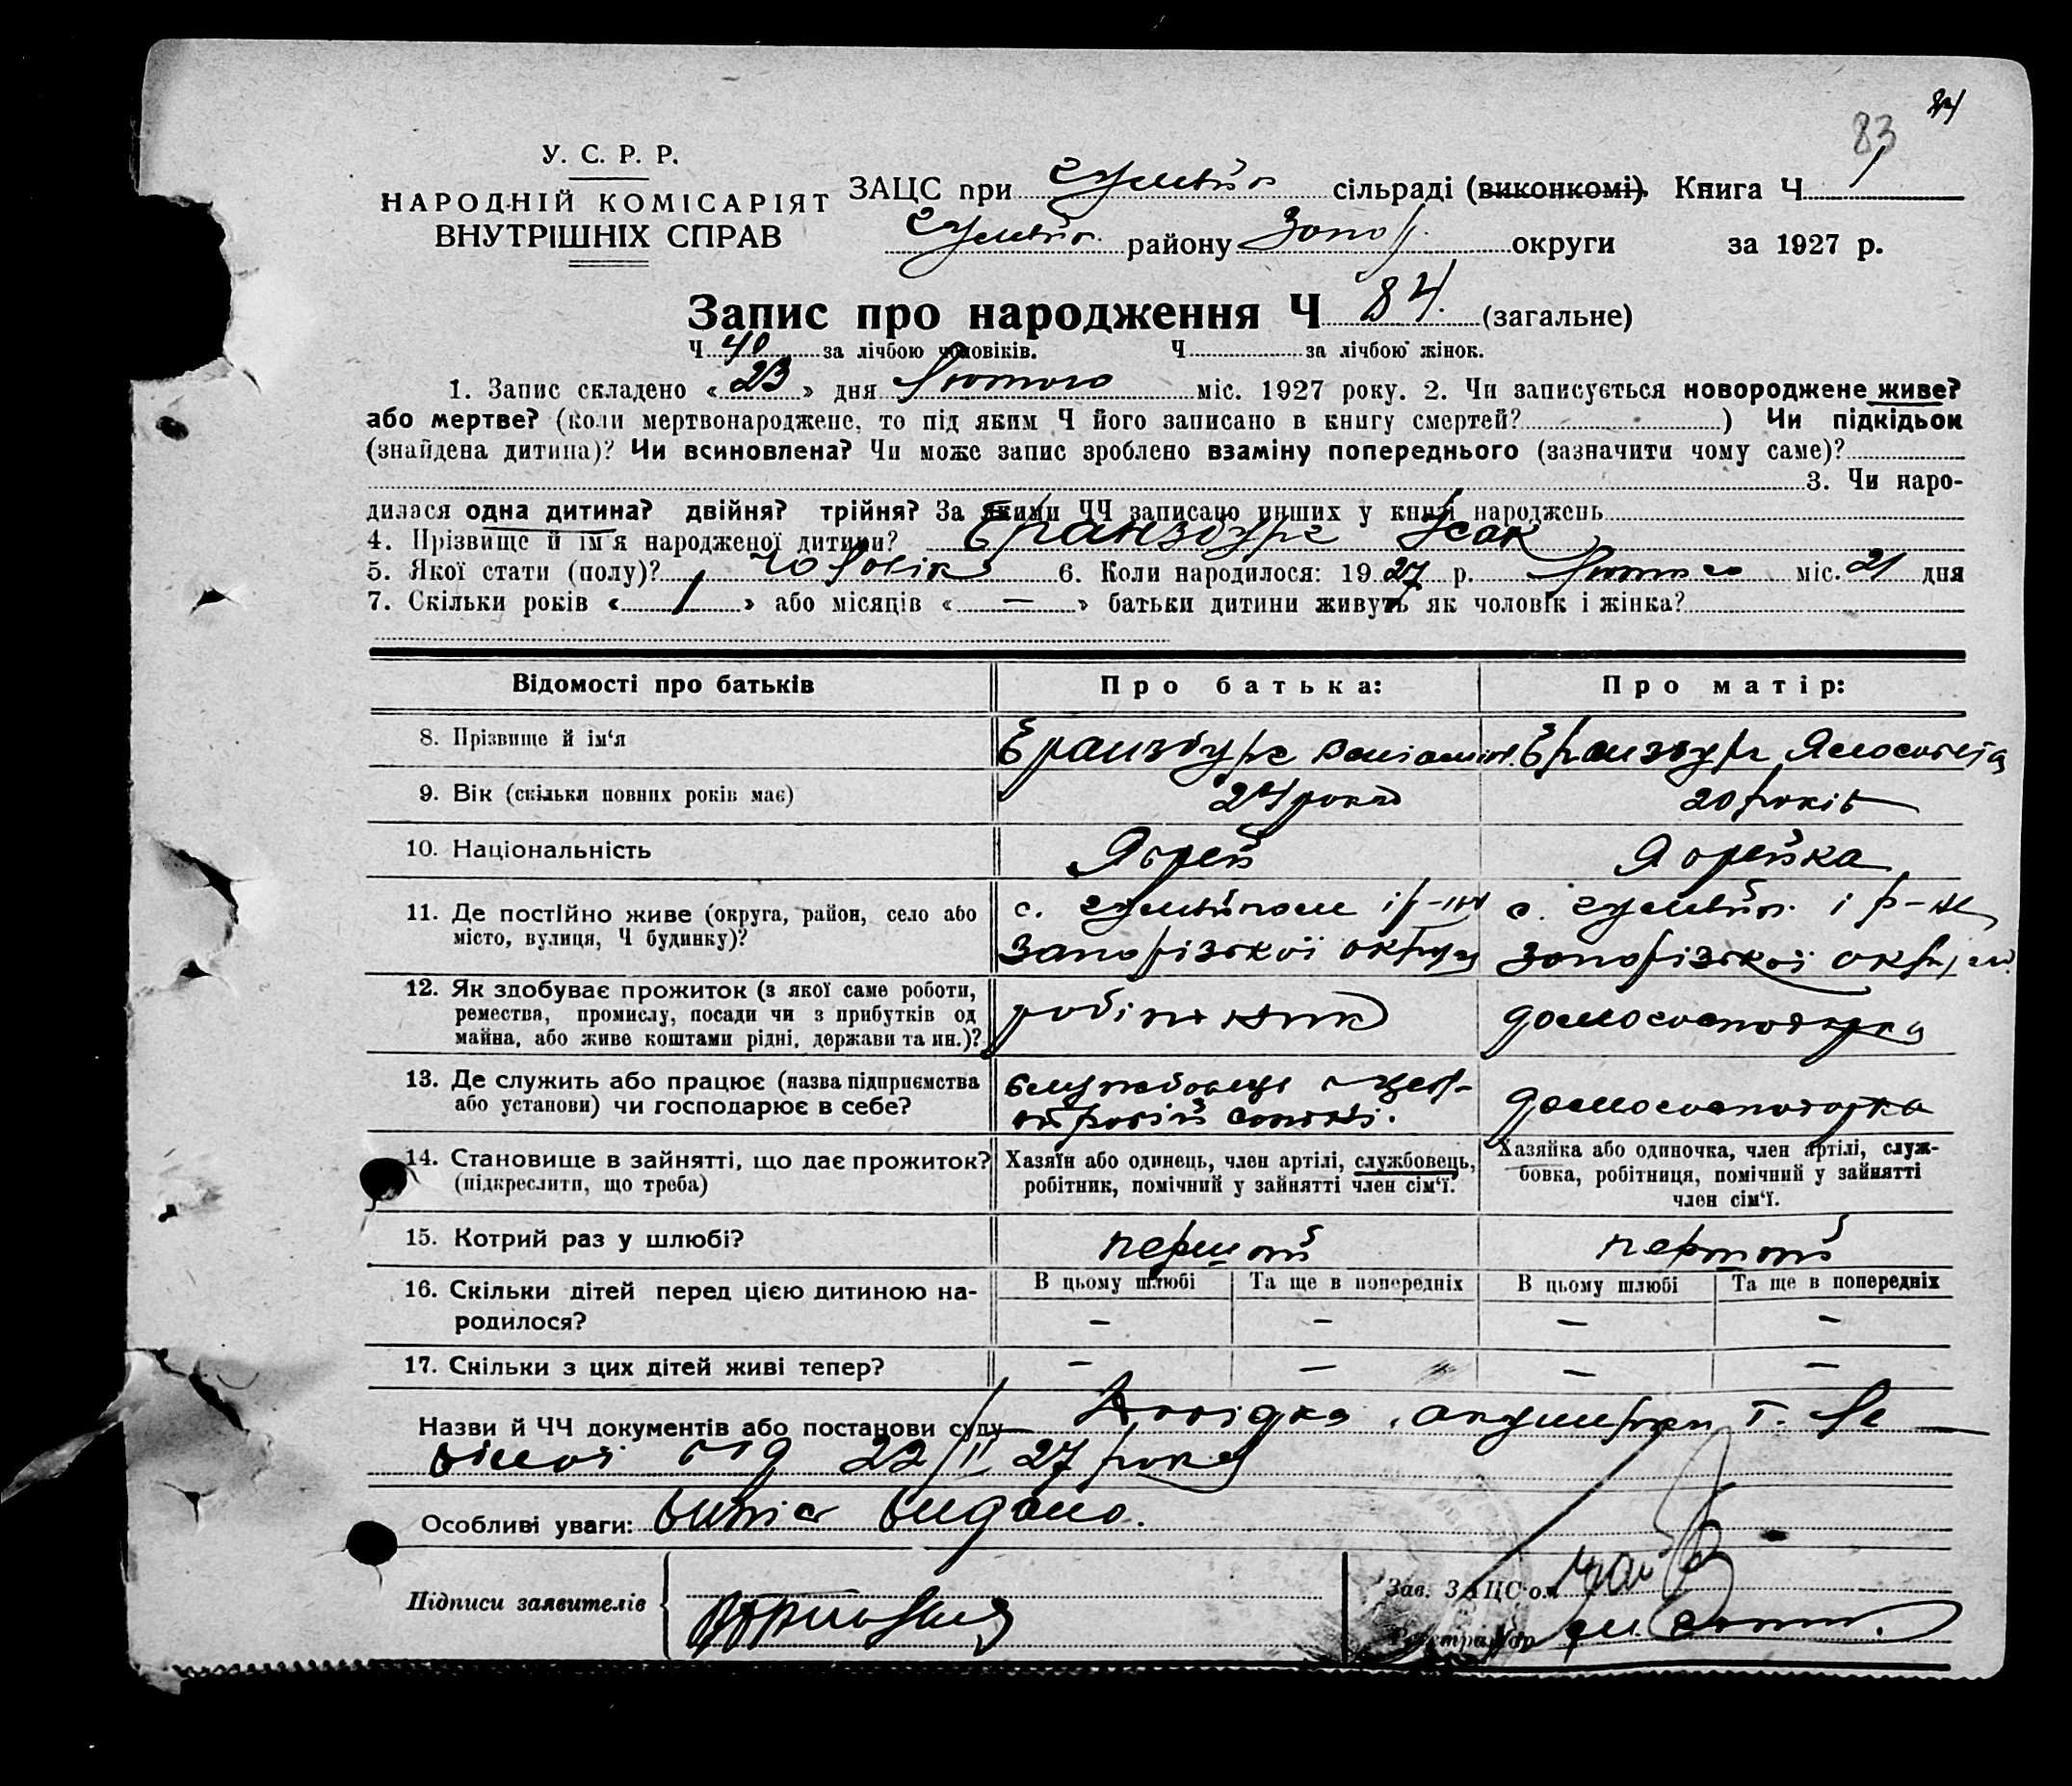 83
У. С. Р. Р.
НАРОДНІЙ КОМІСАРІЯТ
ВНУТРІШНІХ СПРАВ
ЗАЦС при Гуляйпол сільраді (виконкомі). Книга Ч 1
Гуляйп. району Запор. округи за 1927 р.
Запис про народження Ч 84. (загальне)
Ч 40 за лічбою чоловіків. Ч за лічбою жінок.
1. Запис складено « 23 » дня Лютого міс. 1927 року. 2. Чи записується новороджене живе?
або мертве? (коли мертвонароджене, то під яким Ч його записано в книгу смертей? ) Чи підкідьок
(знайдена дитина)? Чи всиновлена? Чи може запис зроблено взаміну попереднього (зазначити чому саме)?
3. Чи наро-
дилася одна дитина? двійня? трійня? За якими ЧЧ записано инших у книзі народжень
4. Прізвище й ім'я народженої дитини? Ісак
5. Якої стати (полу)? Чоловік 6. Коли народилося: 1927 р. Лютого міс. 21 дня
7. Скільки років « 1 » або місяців « — » батьки дитини живуть як чоловік і жінка?
Відомості про батьків Про батька: Про матір:
8. Прізвище й ім'я
9. Вік (скільки повних років має) 24 роки 20 років
10. Національність Яврей Яврейка
11. Де постійно живе (округа, район, село або
місто, вулиця, Ч будинку)?
с. Гуляйполе і р-ну
Запорізької округи
с. Гуляйпол. і р-ну
Запорізької округи
12. Як здобуває прожиток (з якої саме роботи,
ремества, промислу, посади чи з прибутків од
майна, або живе коштами рідні, держави та ин.)?
робітник
домогосподарка
13. Де служить або працює (назва підприємства
або установи) чи господарює в себе?
домогосподарка
14. Становище в зайнятті, що дає прожиток?
(підкреслити, що треба)
Хазяїн або одинець, член артілі, службовець,
робітник, помічний у зайнятті член сім'ї.
Хазяйка або одиночка, член артілі, служ-
бовка, робітниця, помічний у зайнятті
член сім'ї.
15. Котрий раз у шлюбі? перший перший
16. Скільки дітей перед цією дитиною на-
родилося?
В цьому шлюбі Та ще в попередніх В цьому шлюбі Та ще в попередніх
— — — —
17. Скільки з цих дітей живі тепер? — — — —
Назви й ЧЧ документів або постанови суду Довідка акушерки
від 22/II 27 року
Особливі уваги: Витяг видано.
Підписи заявителів
Зав. ЗАЦС'ом
Реєстратор